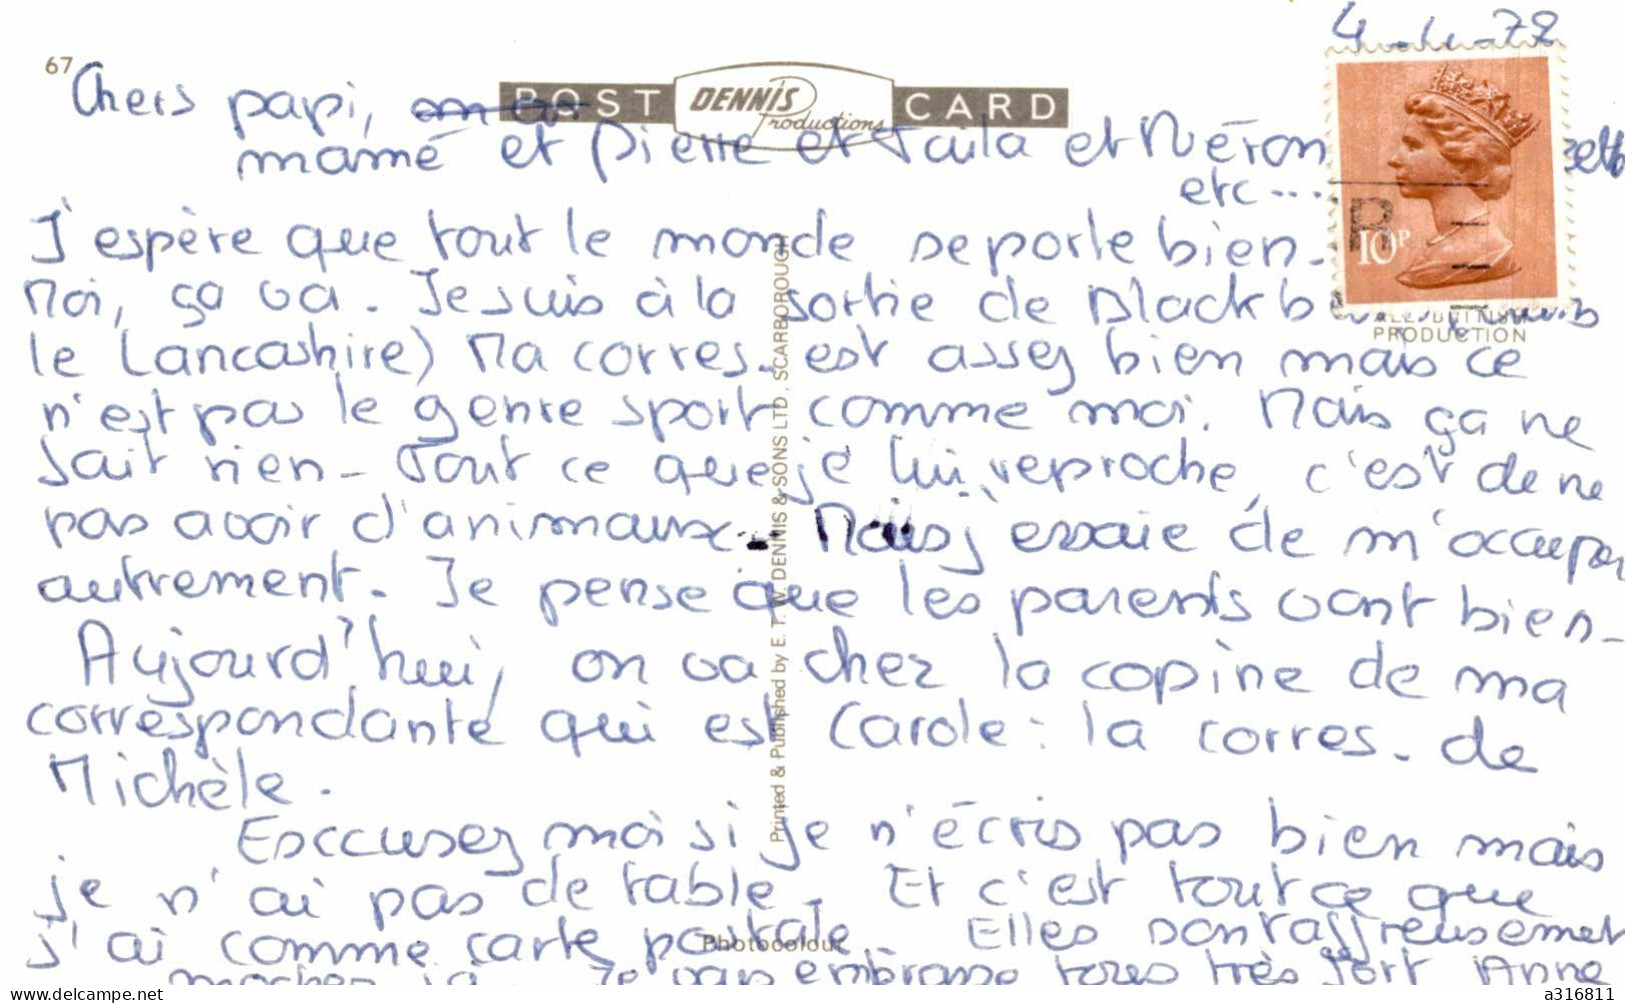 67
POST DENNIS Productions CARD
Chers papi,
mamé et Pierre et Taïla et Néron
etc...
J'espère que tout le monde se porte bien.
Moi, ça va. Je suis à la sortie de Blackb
le Lancashire) Ma corres. est assez bien mais ce
n'est pas le genre sport comme moi. Mais ça ne
fait rien - Tout ce que je lui reproche, c'est de ne
pas avoir d'animaux. Mais j'essaie de m'occuper
autrement. Je pense que les parents vont bien -
Aujourd'hui, on va chez la copine de ma
correspondante qui est Carole : la corres. de
Michèle.
Excusez moi si je n'écris pas bien mais
je n'ai pas de table. Et c'est tout ce que
j'ai comme carte postale. Elles sont affreusement
moches ici. Je vous embrasse tous très fort Anne
10P
ALL BRITISH
PRODUCTION
Printed & Published by E. T. W. DENNIS & SONS LTD., SCARBOROUGH
Photocolour
www.delcampe.net
a316811